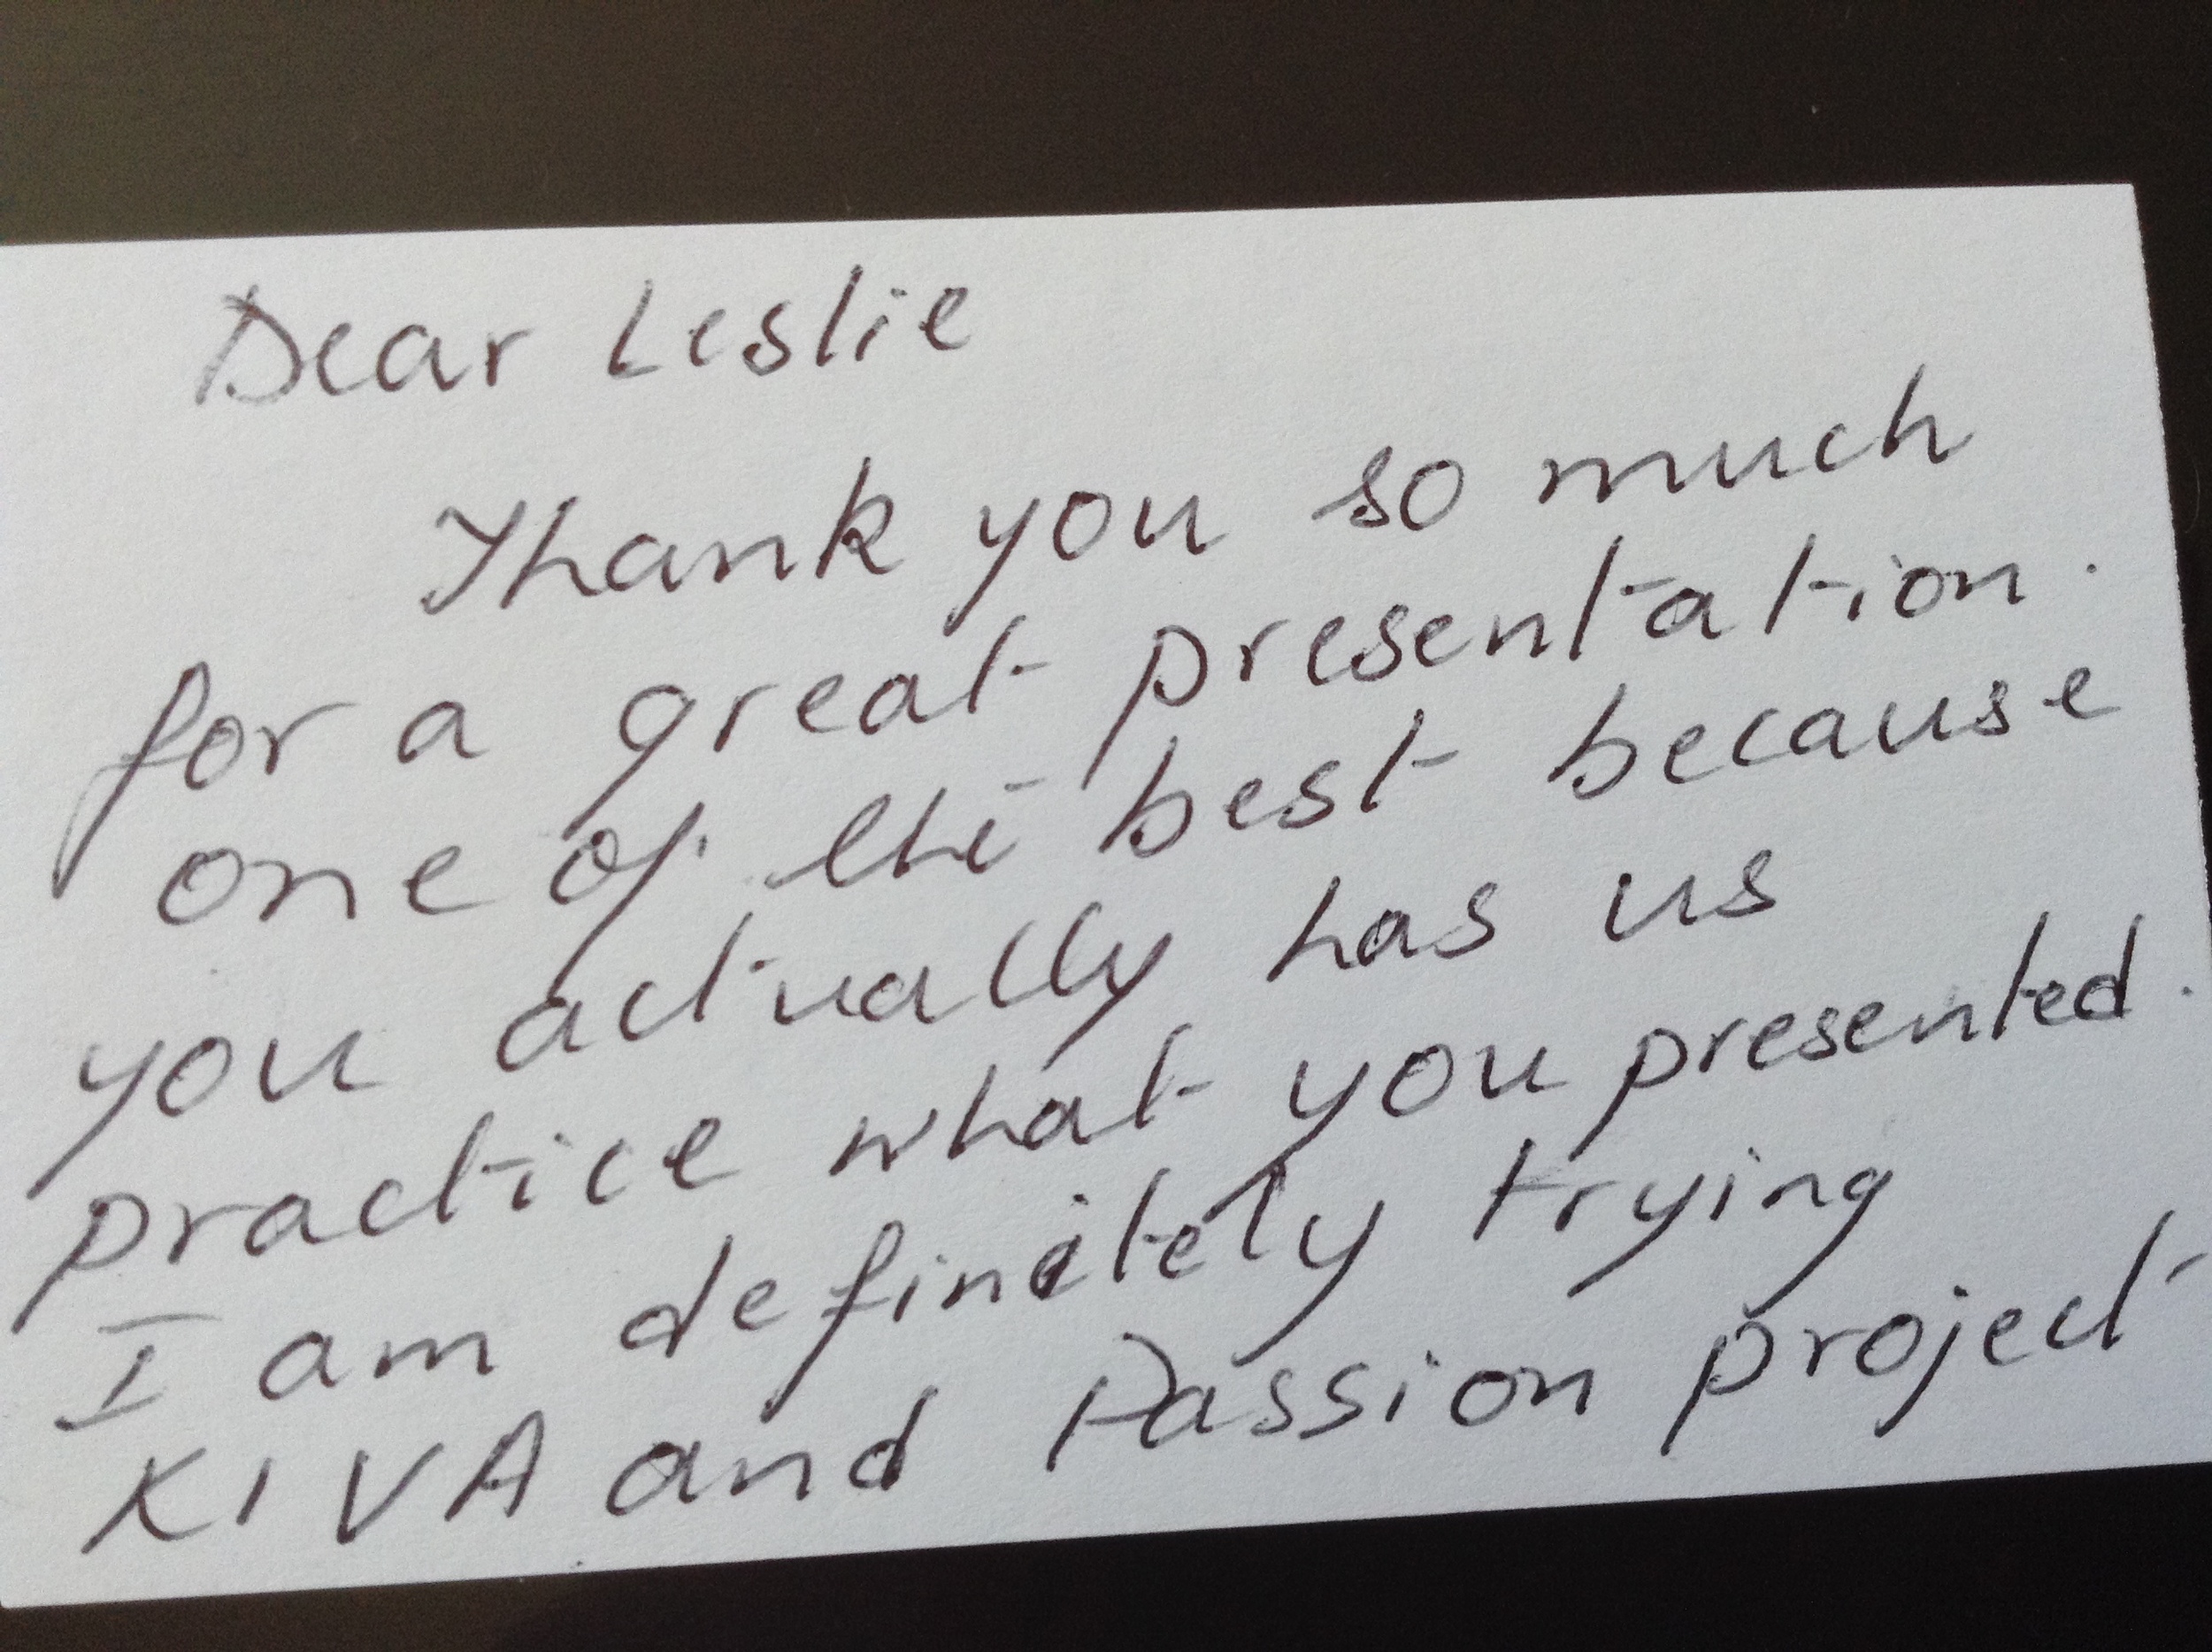 Dear Leslie
Thank you so much
for a great presentation.
one of the best because
you actually has us
practice what you presented.
I am definitely trying
KIVA and Passion project